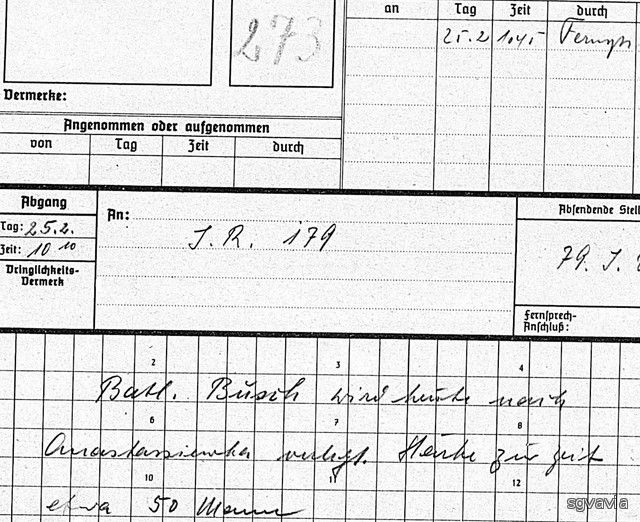 an Tag Zeit durch
273 25.2 1045 Fernspr
Vermerke:
Angenommen oder aufgenommen
von Tag Zeit durch
Abgang An: Absendende Stell
Tag: 25.2. J. R. 179
Zeit: 10 10 79. J.
Dringlichkeits-
Vermerk Fernsprech-
Anschluß:
2 3 4
Batl. Busch wird heute nach
6 7 8
Anastassiewka verlegt. Stärke zur Zeit
10 11 12
etwa 50 Mann
sgvavia